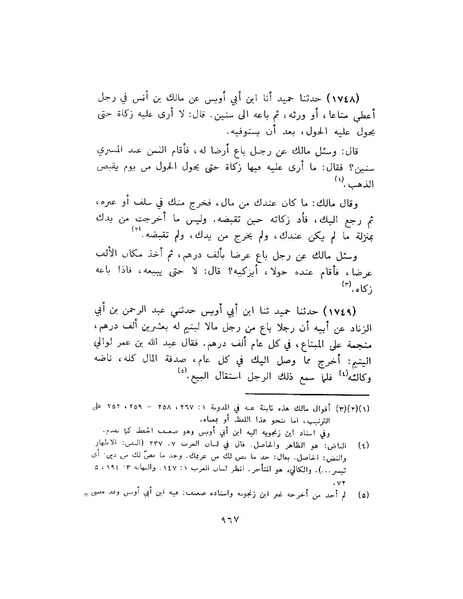 (١٧٤٨) حدثنا حميد أنا ابن أبي أويس عن مالك بن أنس في رجل
أعطي متاعا، أو ورثه، ثم باعه الى سنين. قال: لا أرى عليه زكاة حتى
يحول عليه الحول، بعد أن يستوفيه.
قال: وسئل مالك عن رجل باع أرضا له، فأقام الثمن عند المشتري
سنين؟ فقال: ما أرى عليه فيها زكاة حتى يحول الحول من يوم يقبض
الذهب.(١)
وقال مالك: ما كان عندك من مال، فخرج منك في سلف أو غيره،
ثم رجع اليك، فأد زكاته حين تقبضه. وليس ما أخرجت من يدك
بمنزلة ما لم يكن عندك، ولم يخرج من يدك، ولم تقبضه.(٢)
وسئل مالك عن رجل باع عرضا بألف درهم، ثم أخذ مكان الألف
عرضا، فأقام عنده حولا، أيزكيه؟ قال: لا حتى يبيعه، فاذا باعه
زكاه.(٣)
(١٧٤٩) حدثنا حميد ثنا ابن أبي أويس حدثني عبد الرحمن بن أبي
الزناد عن أبيه أن رجلا باع من رجل مالا ليتيم له بعشرين ألف درهم،
منجمة على المبتاع، في كل عام ألف درهم. فقال عبد الله بن عمر لوالي
اليتيم: أخرج مما وصل اليك في كل عام، صدقة المال كله، ناضه
وكالئه(٤) فلما سمع ذلك الرجل استقال البيع.(٥)
(١)(٢)(٣) أقوال مالك هذه ثابتة عنه في المدونة ١: ٢٦٧، ٢٥٨ - ٢٥٩، ٢٥٢ على
الترتيب، اما بنحو هذا اللفظ أو بمعناه.
وفي اسناد ابن زنجويه اليه ابن أبي أويس وهو ضعيف الحفظ كما تقدم.
(٤) الناض: هو الظاهر والحاصل. قال في لسان العرب ٧: ٢٣٧ (النض: الاظهار
والنض: الحاصل. يقال: خذ ما نض لك من غريمك. وخذ ما نض لك من دين، أي
تيسر...). والكالىء هو المتأخر. انظر لسان العرب ١: ١٤٧، والنهاية ٣: ١٩٤، ٥
٧٢.
(٥) لم أجد من أخرجه غير ابن زنجويه واسناده ضعيف: فيه ابن أبي أويس وقد مضى =
٩٦٧